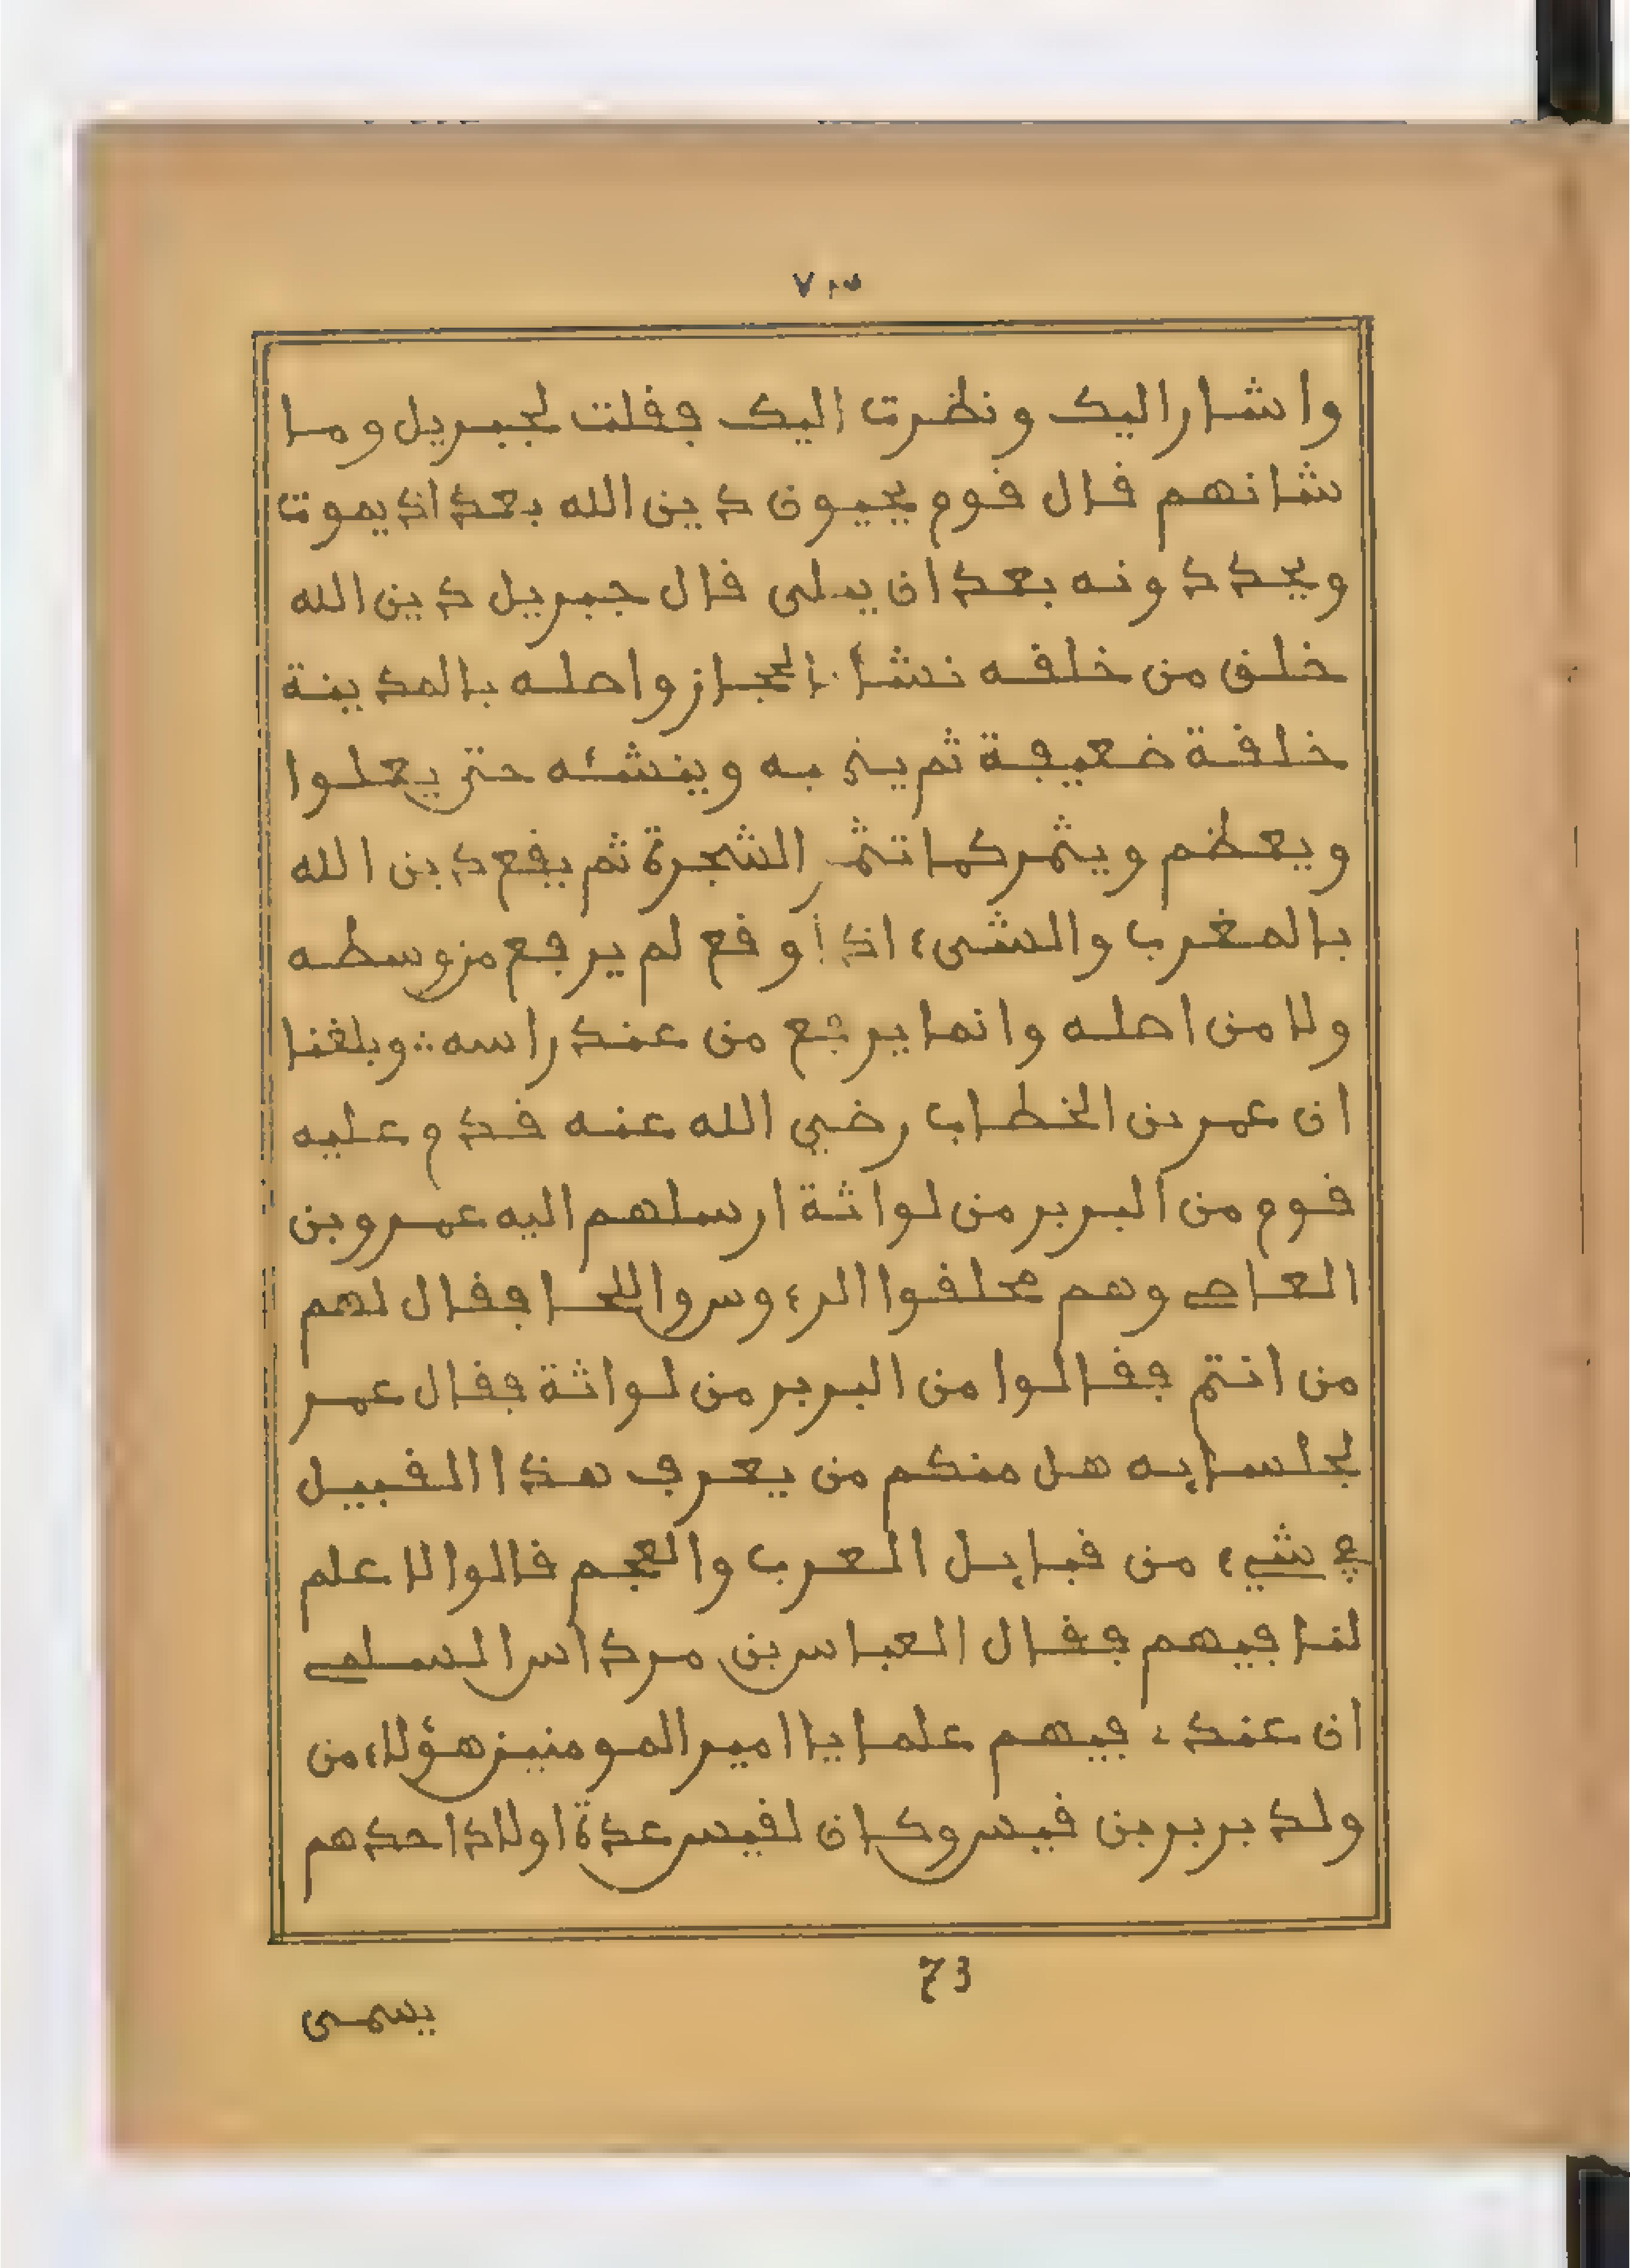 ٧٣
واشار اليك ونظرت اليك فقلت لجبريل وما
شانهم قال قوم يحيون دين الله بعد اذ يموت
ويجددونه بعد ان يبلى قال جبريل دين الله
خلق من خلقه نشأ بالحجاز واهله بالمدينة
خلقة ضعيفة ثم ينميه وينشئه حتى يعلوا
ويعظم ويثمر كما تثمر الشجرة ثم يقع دين الله
بالمغرب والشىء اذا وقع لم يرجع من وسطه
ولا من اهله وانما يرجع من عند راسه ؞ وبلغنا
ان عمر بن الخطاب رضي الله عنه قدم عليه
قوم من البربر من لواثة ارسلهم اليه عمرو بن
العاص وهم محلقوا الرءوس واللحا فقال لهم
من انتم فقالوا من البربر من لواثة فقال عمر
لجلسايه هل منكم من يعرف هذا القبيل
في شيء من قبايل العرب والعجم قالوا لا علم
لنا فيهم فقال العباس بن مرداس السلمي
ان عندي فيهم علما يا امير المومنين هؤلاء من
ولد بربر بن قيس وكان لقيس عدة اولاد احدهم
73
يسمى